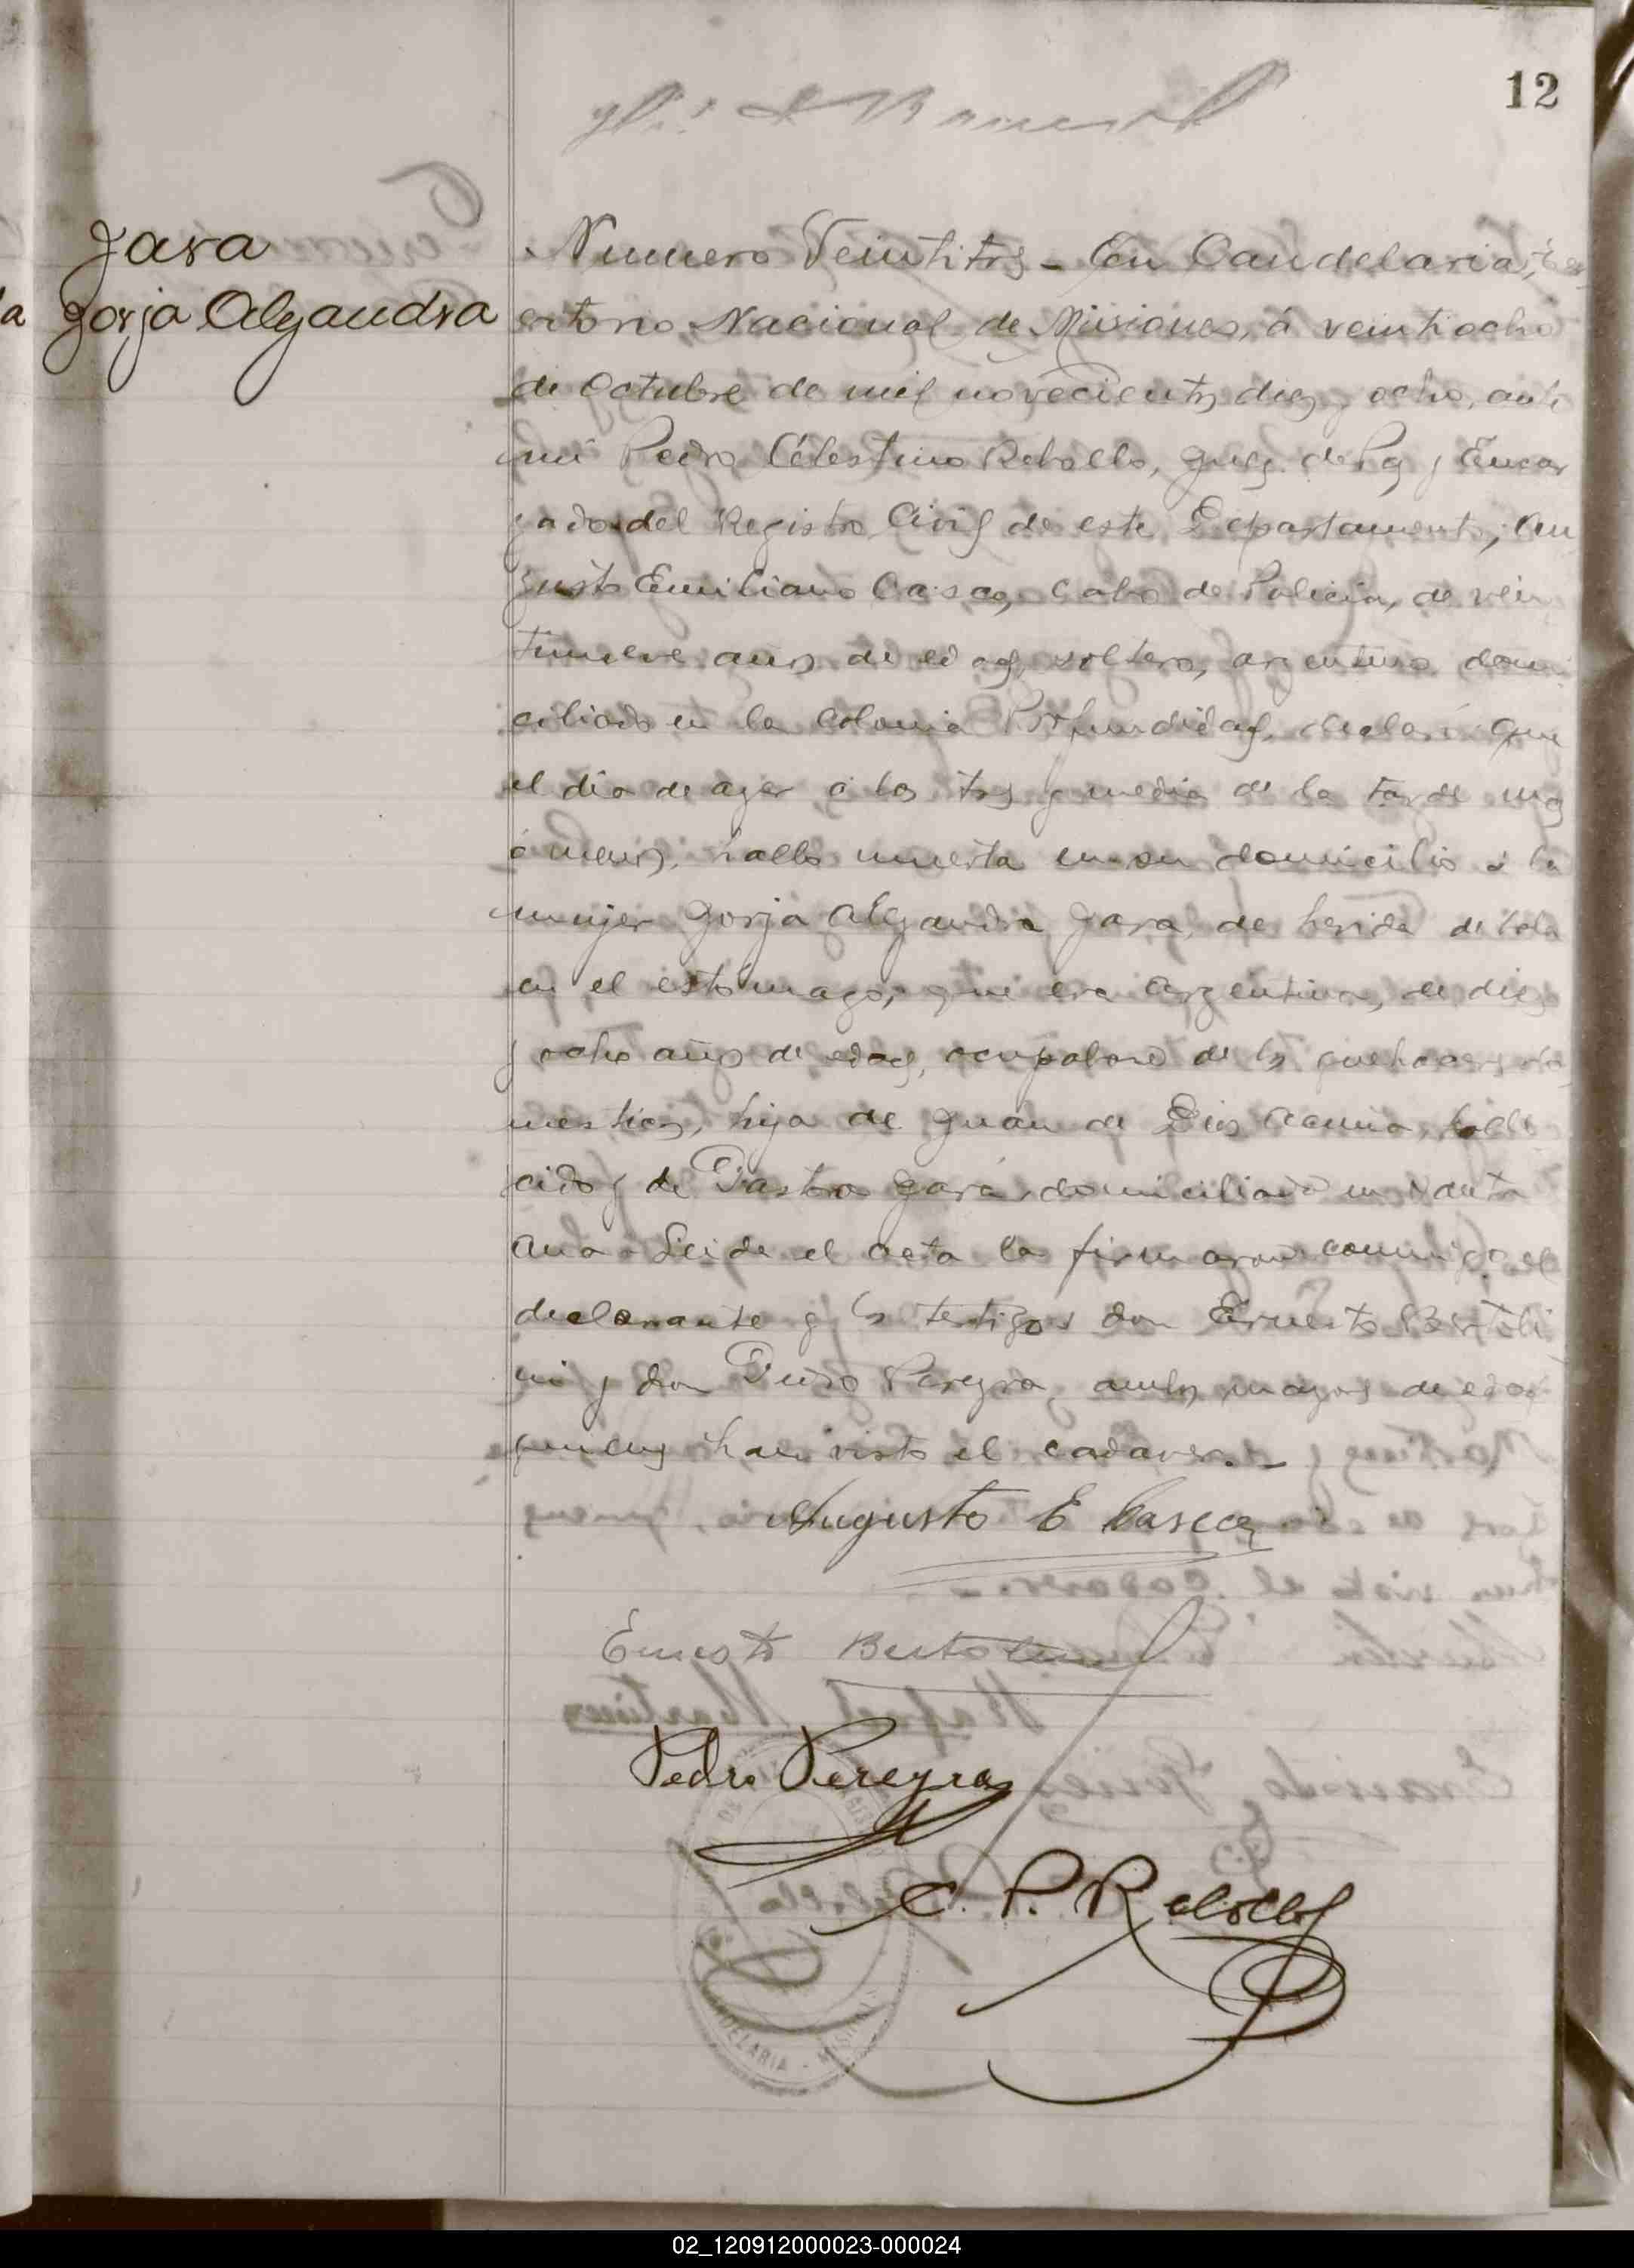 12
Jara
Jorja Alejandra
Numero Veintitres - En Candelaria, Te
rritorio Nacional de Misiones, á veintiocho
de Octubre de mil novecientos diez y ocho, ante
mi Pedro Célestino Rebollo, Juez de Paz y Encar
gado del Registro Civil de este Departamento, Au
gusto Emiliano Casco, Cabo de Policia, de vein
tinueve años de edad, soltero, argentino, domi
ciliado en la Colonia Profundidad, declaró: Que
el dia de ayer á las tres y media de la tarde mas
ó menos, hallo muerta en su domicilio á la
mujer Jorja Alejandra Jara, de herida de bala
en el estómago; que era Argentina, de diez
y ocho años de edad, ocupabase de los quehaceres do
mesticos, hija de Juan de Dios Acuña, falle
cido y de Pastora Jara, domiciliada en Santa
Ana - Leida el acta la firmaron conmigo el
declarante y los testigos don Ernesto Bertoli
ni y don Pedro Pereyra, ambos mayores de edad
quienes han visto el cadaver. -
Augusto E Casco
Ernesto Bertolini
Pedro Pereyra
C. P. Rebollo
CANDELARIA - MISIONES
02_120912000023-000024